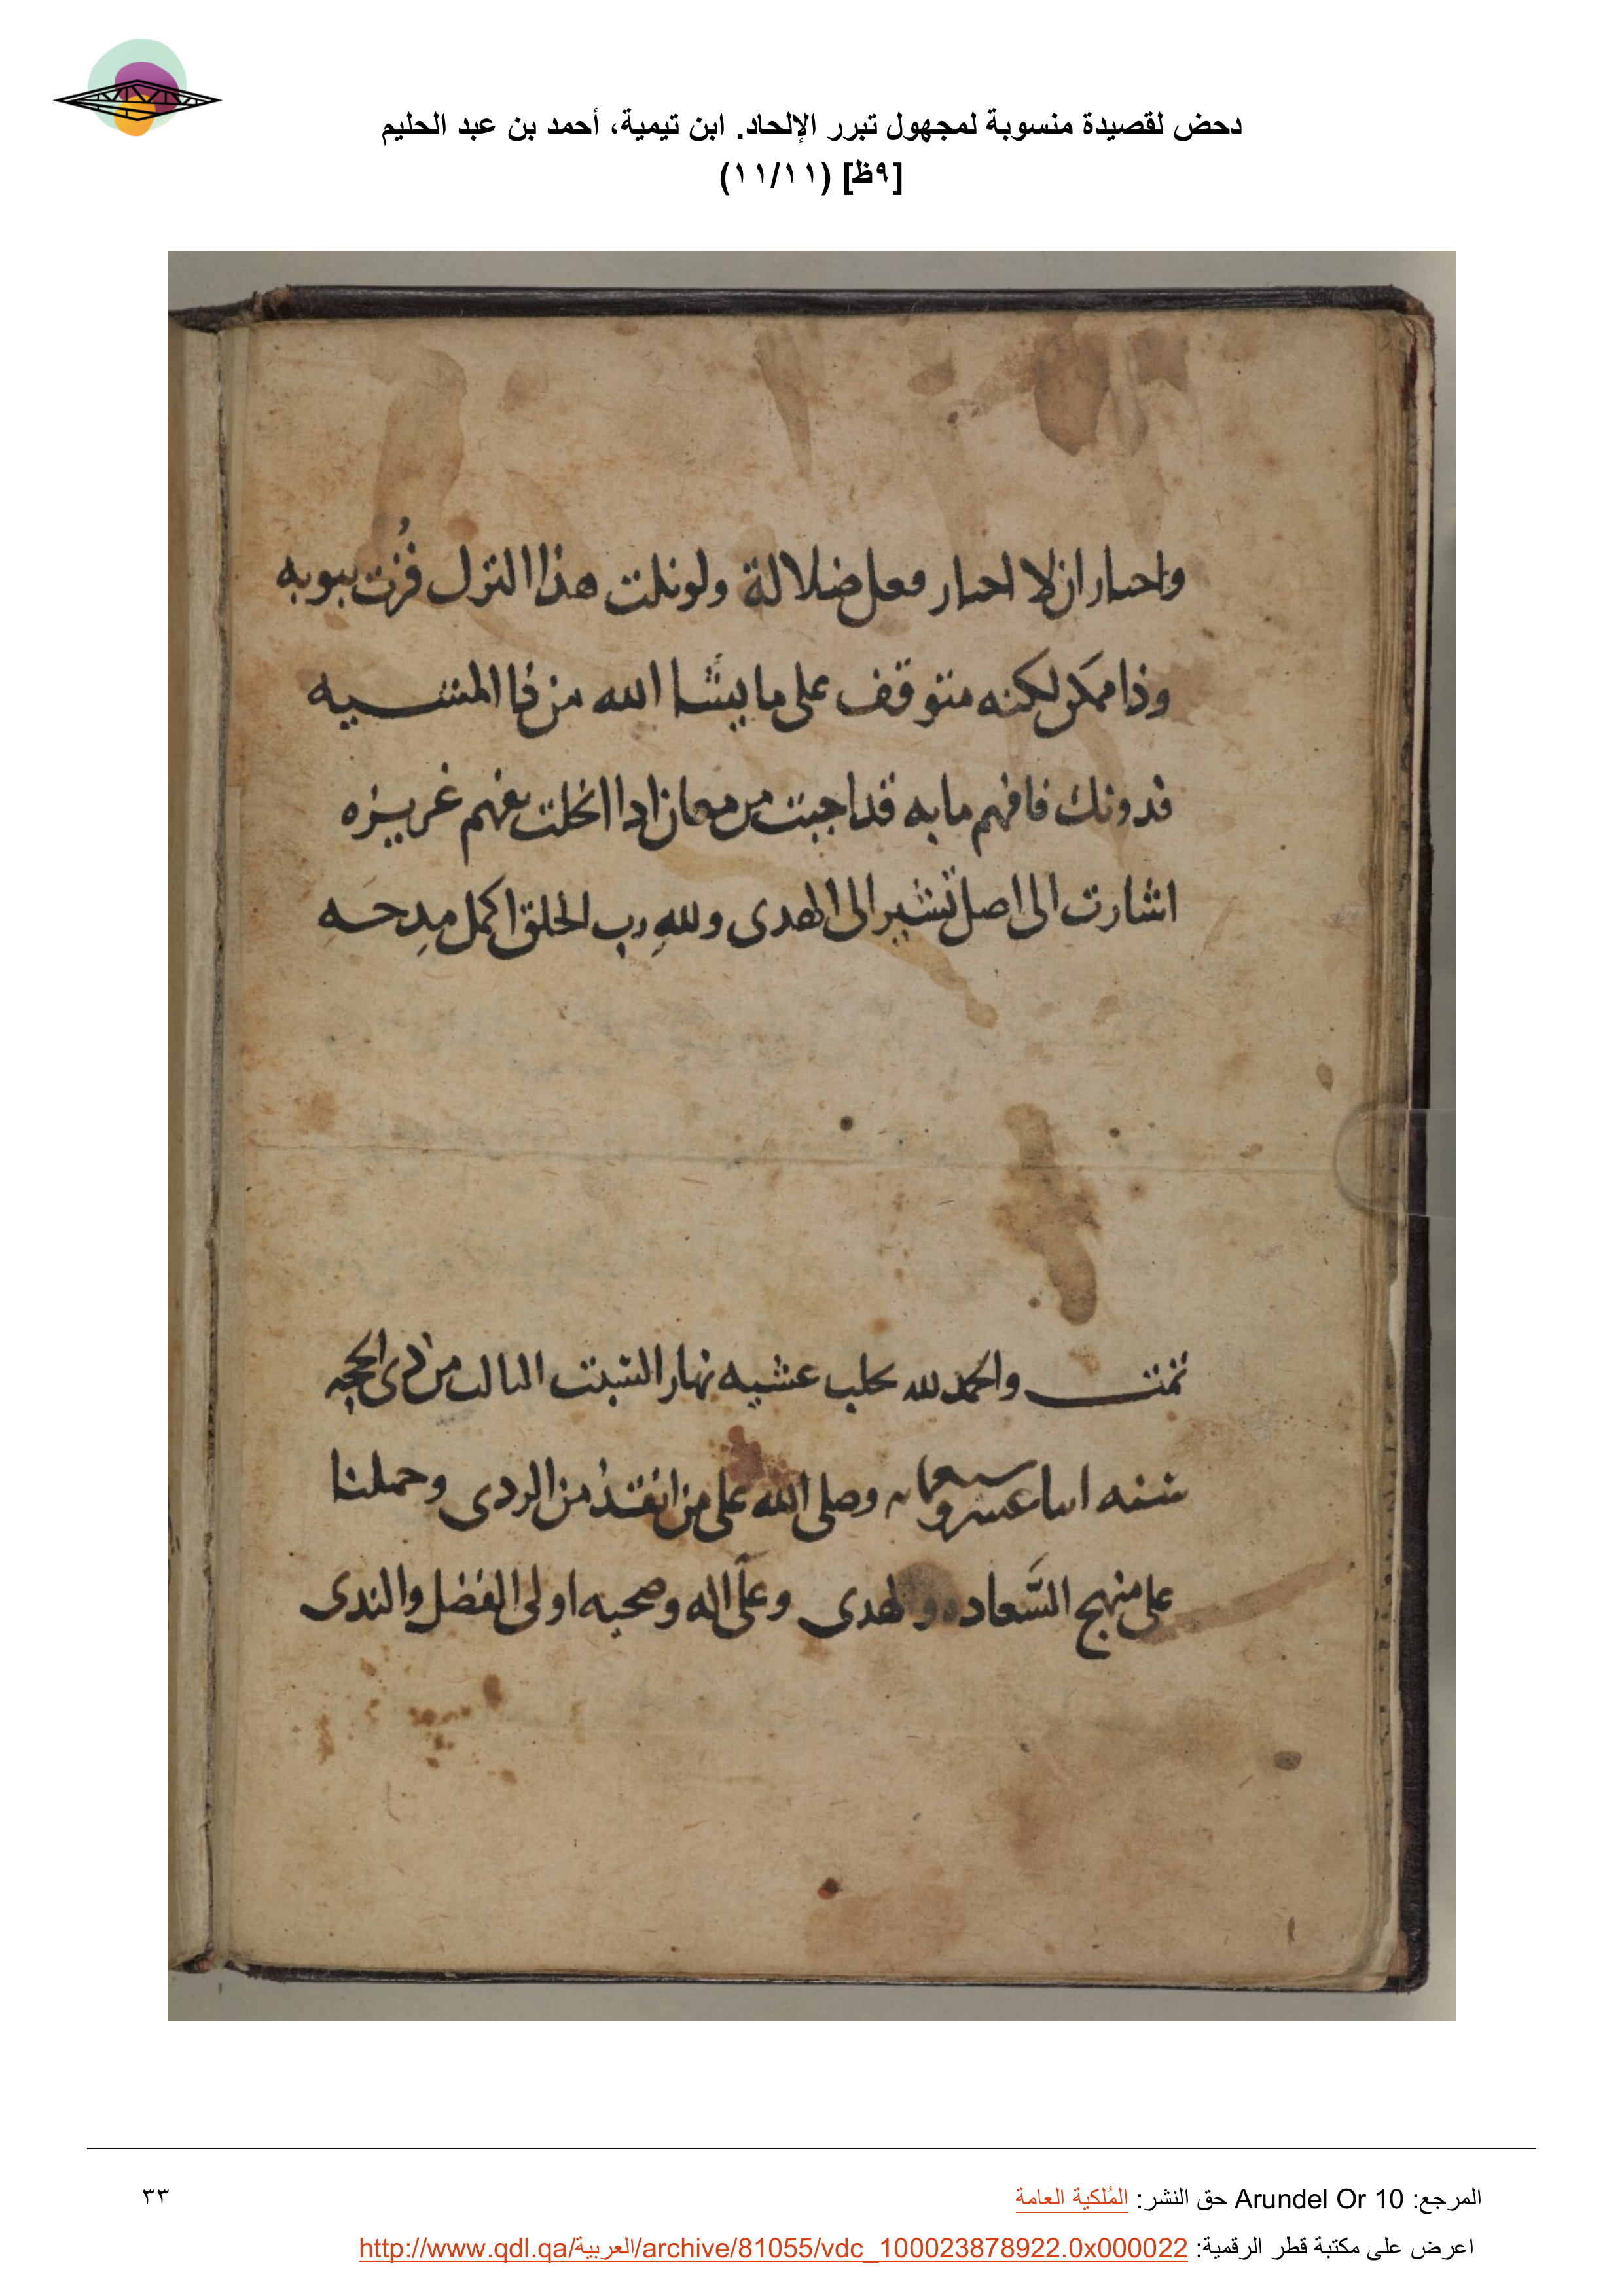 دحض لقصيدة منسوبة لمجهول تبرر الإلحاد. ابن تيمية، أحمد بن عبد الحليم
[٩ظ] (١١/١١)
واحىار ان لا احىار فعل ضلالة ولو نلت هذا الترك فزت بىوبه
وذا ممكن لكنه متوقف على ما يشا الله من ذا المشيه
فدونك فافهم ما به قد اجبت من معان اذا انحلت بفهم غريزه
اشارت الى اصل تشير الى الهدى ولله رب الخلق اكمل مدحه
تمت والحمد لله بحلب عشيه نهار السبت الثالث من ذى الحجه
سنه وصلى الله على من انقذنا من الردى وحملنا
على منهج السعاده والهدى وعلى اله وصحبه اولى الفضل والندى
المرجع: Arundel Or 10 حق النشر: المُلكية العامة
٣٣
اعرض على مكتبة قطر الرقمية: http://www.qdl.qa/العربية/archive/81055/vdc_100023878922.0x000022